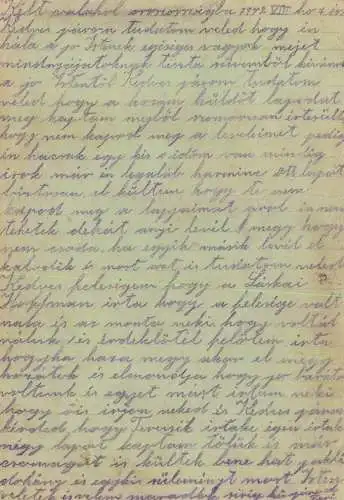 Kelt valahol oroszországba 1942 VIII hó
Kedves párom tudatom veled hogy én
hála a jó Istenek egésiges vagyok mejet
mindnyájatoknyk tiszta szivemtöl kivánok
a jo Istentöl Kedves párom tudatom
veled hogy a hozám küldöt lapodat
meg kaptam mejböl szomoruan értesültem
hogy nem kapod meg a leveleimet pedig
én hacsak egy kis idöm van mindig
irok már én legaláb harminc lapot
biztosan el kültem hogy te nem
kapod meg a lapjaimat arol én nem
tehetek dehát anyi levél megy hogy
nem csoda ha egyik másik levél el
kalodik és most azt is tudatom veled
Kedves feleségem hogy a Lázkai
Hoffman irta hogy a felesége volt
nála és az monta neki hogy voltál
náluk és érdeklötél felölem irta
hogy ha haza megy akor el megy
hozátok és elmondja hogy jo barátok
voltunk és egyet most irtam neki
hogy ö is irjon neked és Kedves párom
kérded hogy Terusik irtake igen irtak
négy lapot kaptam tölük és már
csomagot is kültek bene hat pakli
dohány és egyéb süteményt most